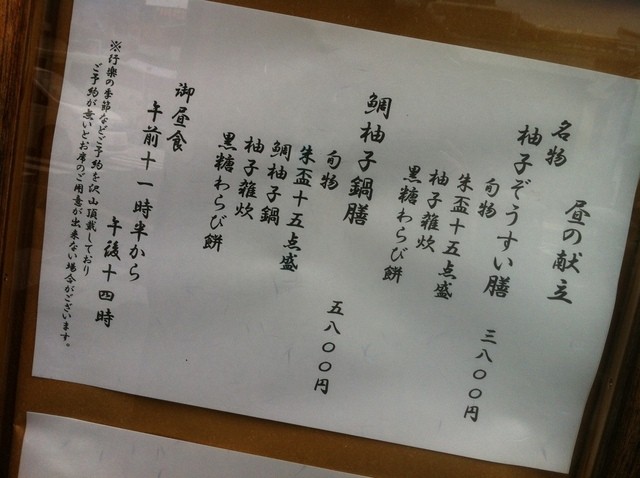 昼の献立
名物
柚子ぞうすい膳 三八〇〇円
旬物
朱盃十五点盛
柚子雑炊
黒糖わらび餅
鯛柚子鍋膳 五八〇〇円
旬物
朱盃十五点盛
鯛柚子鍋
柚子雑炊
黒糖わらび餅
御昼食
午前十一時半から
午後十四時
※行楽の季節などご予約を沢山頂戴しており
ご予約が無いとお席のご用意が出来ない場合がございます。